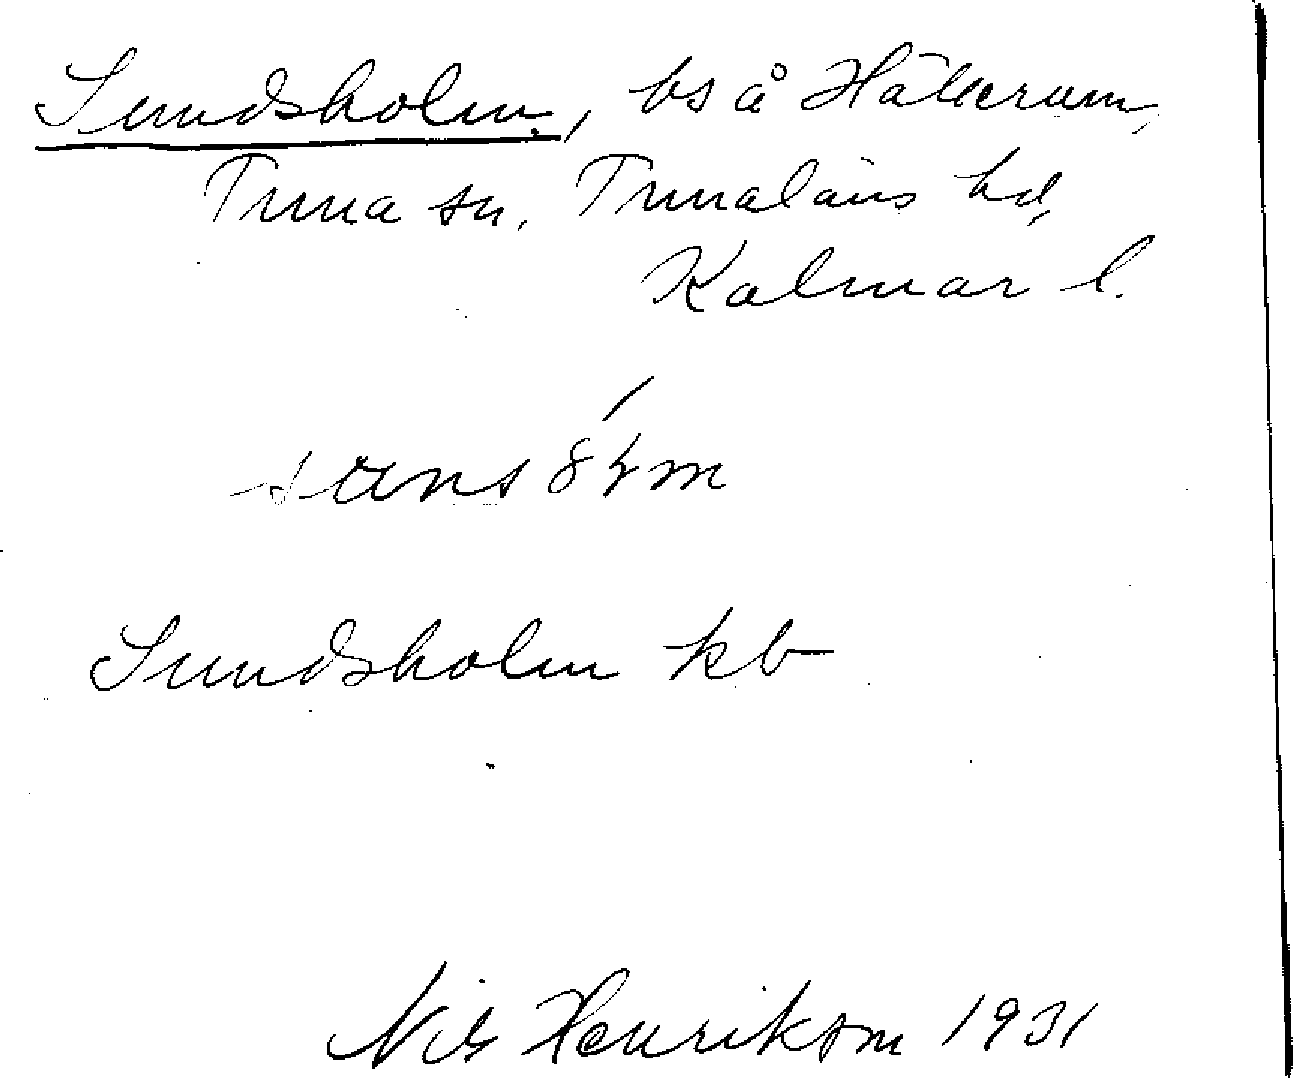 Sundsholm, bs å Hällerum,
Tuna sn, Tunaläns hd,
Kalmar l.
Sundsholm kb
Nils Henrikson 1931